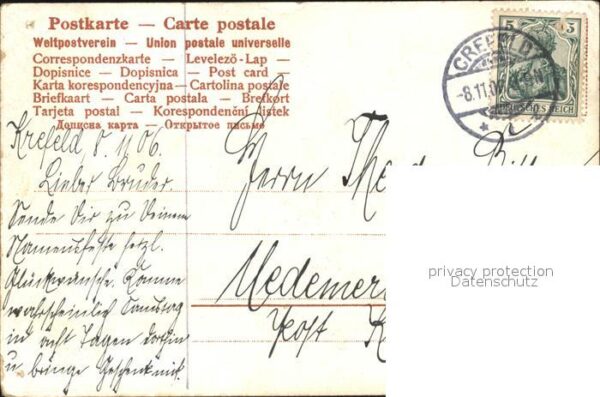 Postkarte — Carte postale
Weltpostverein — Union postale universelle
Correspondenzkarte — Levelezö-Lap —
Dopisnice — Dopisnica — Post card —
Karta korespondencyjna — Cartolina postale
Briefkaart — Carta postala — Brefkort
Tarjeta postal — Korespondenční listek
Дописна карта — Открытое письмо
5 5
DEUTSCHES REICH
CREFELD
-8.11.0
Krefeld 8. 11 06.
Lieber Bruder.
Sende Dir zu Deinem
Namensfeste herzl.
Glückwünsche. Komme
wahrscheinlich Samstag
in acht Tagen dorthin
u bringe Geschenk mit.
Herrn Theod
Uedemer
Post K
privacy protection
Datenschutz